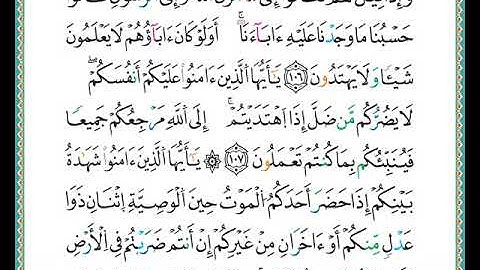 حَسْبُنَا مَا وَجَدْنَا عَلَيْهِ ءَابَآءَنَآۚ أَوَلَوْ كَانَ ءَابَآؤُهُمْ لَا يَعْلَمُونَ
شَيْـًٔا وَلَا يَهْتَدُونَ ١٠٦ يَـٰٓأَيُّهَا ٱلَّذِينَ ءَامَنُوا۟ عَلَيْكُمْ أَنفُسَكُمْۖ
لَا يَضُرُّكُم مَّن ضَلَّ إِذَا ٱهْتَدَيْتُمْۚ إِلَى ٱللَّهِ مَرْجِعُكُمْ جَمِيعًا
فَيُنَبِّئُكُم بِمَا كُنتُمْ تَعْمَلُونَ ١٠٧ ۞ يَـٰٓأَيُّهَا ٱلَّذِينَ ءَامَنُوا۟ شَهَـٰدَةُ
بَيْنِكُمْ إِذَا حَضَرَ أَحَدَكُمُ ٱلْمَوْتُ حِينَ ٱلْوَصِيَّةِ ٱثْنَانِ ذَوَا
عَدْلٍ مِّنكُمْ أَوْ ءَاخَرَانِ مِنْ غَيْرِكُمْ إِنْ أَنتُمْ ضَرَبْتُمْ فِى ٱلْأَرْضِ